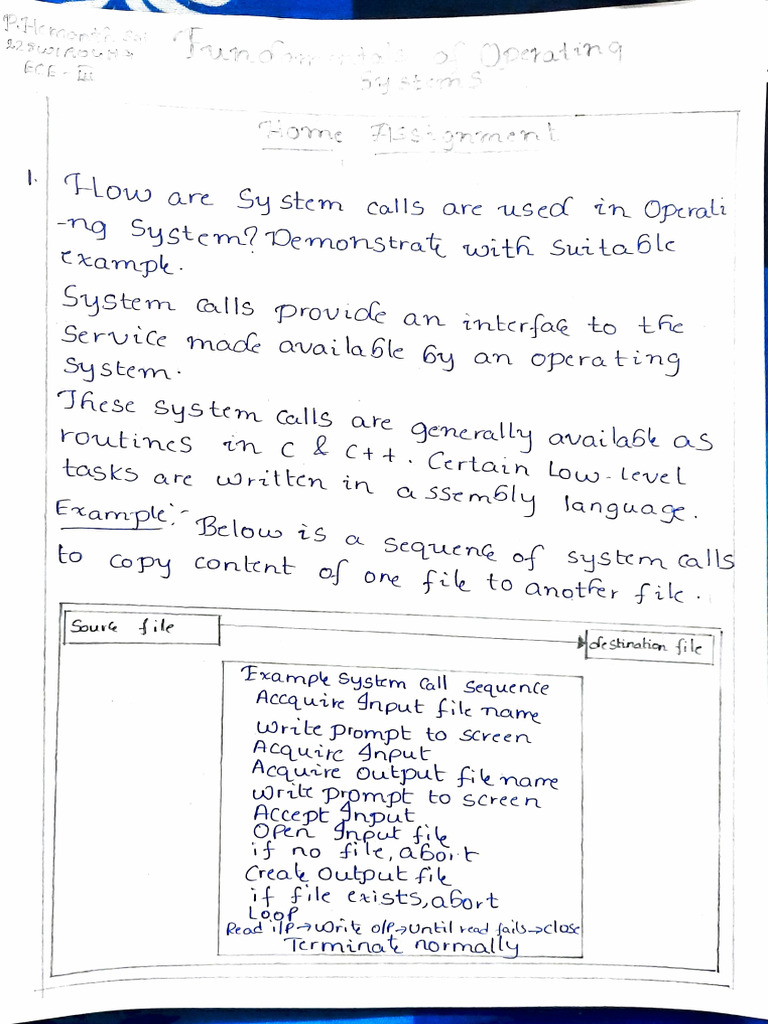 P.Hemanth
ECE - III
Fundamentals of Operating
Systems
Home Assignment
1. How are System calls are used in Operati
-ng System? Demonstrate with suitable
example.
System calls provide an interface to the
service made available by an operating
system.
These system calls are generally available as
routines in C & C++. Certain Low-level
tasks are written in assembly language.
Example:- Below is a sequence of system calls
to copy content of one file to another file.
Source file
destination file
Example System Call Sequence
Accquire Input file name
write prompt to screen
Acquire Input
Acquire Output file name
write prompt to screen
Accept Input
Open Input file
if no file, abort
Create Output file
if file exists, abort
Loop
Read i/p→write o/p→until read fails→close
Terminate normally